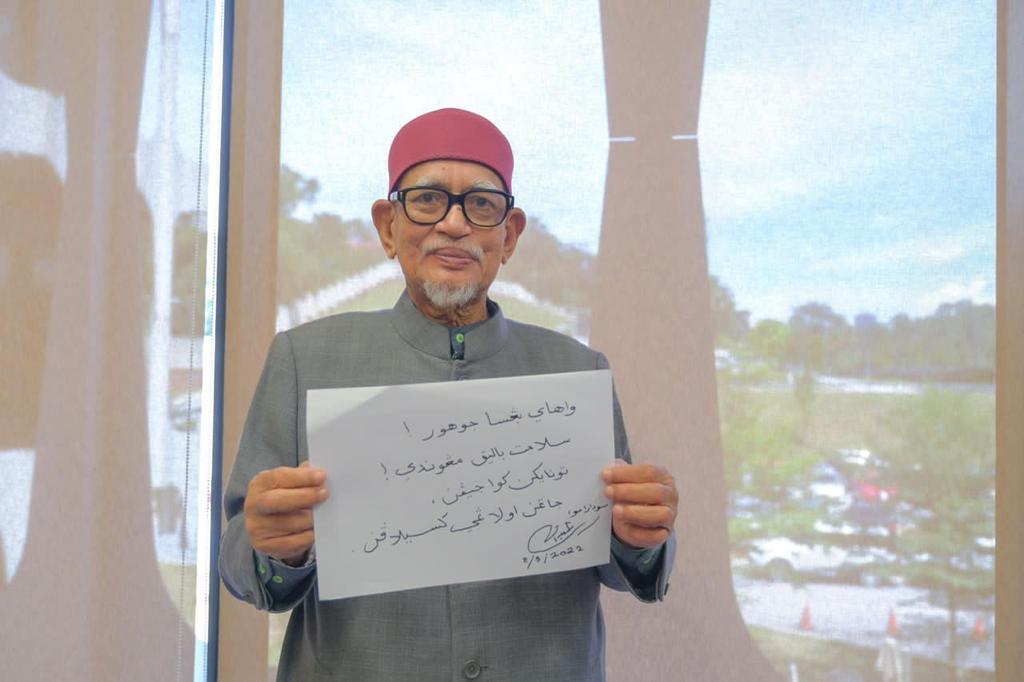 واهاي بڠسا جوهور !
سلامت باليق مڠوندي !
تونايكن كواجيڤن ،
جاڠن اولاڠي كسيلاڤن .
سودارامو ،
8/3/2022